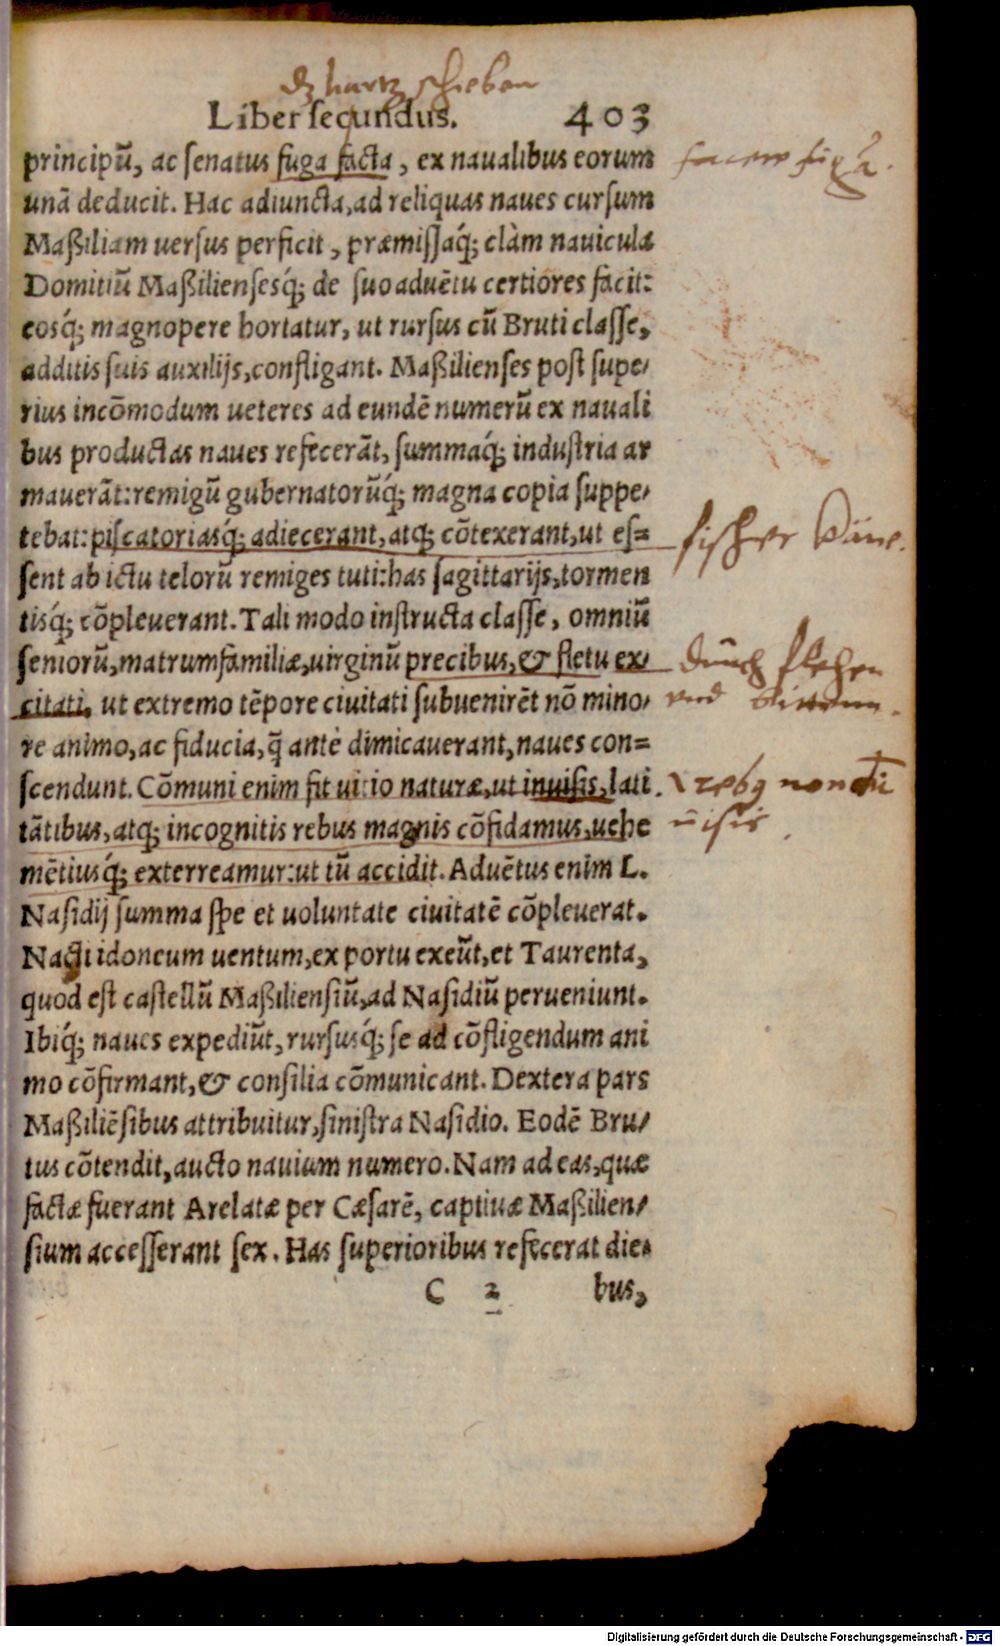 dz hartz schieben
Liber secundus. 403
principũ, ac senatus fuga facta, ex naualibus eorum
unã deducit. Hac adiuncta, ad reliquas naues cursum
Maßiliam uersus perficit, præmissaq́; clàm nauicula
Domitiũ Maßiliensesq́; de suo aduẽtu certiores facit:
eosq́; magnopere hortatur, ut rursus cũ Bruti classe,
additis suis auxilijs, confligant. Maßilienses post supe/
rius incõmodum ueteres ad eundẽ numerũ ex nauali
bus productas naues refecerãt, summaq́; industria ar
mauerãt: remigũ gubernatorũq́; magna copia suppe/
tebat: piscatoriasq́; adiecerant, atq; cõtexerant, ut es=
fischer
sent ab ictu telorũ remiges tuti: has sagittarijs, tormen
tisq́; cõpleuerant. Tali modo instructa classe, omniũ
seniorũ, matrumfamiliæ, uirginũ precibus, & fletu ex/
durch flehen
citati, ut extremo tẽpore ciuitati subuenirẽt nõ mino/
vnd
re animo, ac fiducia, q̃ antè dimicauerant, naues con=
scendunt. Cõmuni enim fit uitio naturæ, ut inuisis, lati
rebq non
tãtibus, atq; incognitis rebus magnis cõfidamus, uehe
uisis
mẽtiusq́; exterreamur: ut tũ accidit. Aduẽtus enim L.
Nasidij summa spe et uoluntate ciuitatẽ cõpleuerat.
Nacti idoneum uentum, ex portu exeũt, et Taurenta,
quod est castellũ Maßiliensiũ, ad Nasidiũ perueniunt.
Ibiq́; naues expediũt, rursusq́; se ad cõfligendum ani
mo cõfirmant, & consilia cõmunicant. Dextera pars
Maßiliẽsibus attribuitur, sinistra Nasidio. Eodẽ Bru/
tus cõtendit, aucto nauium numero. Nam ad eas, quæ
factæ fuerant Arelatæ per Cæsarẽ, captiuæ Maßilien/
sium accesserant sex. Has superioribus refecerat die=
C 2 bus,
Digitalisierung gefördert durch die Deutsche Forschungsgemeinschaft - DFG